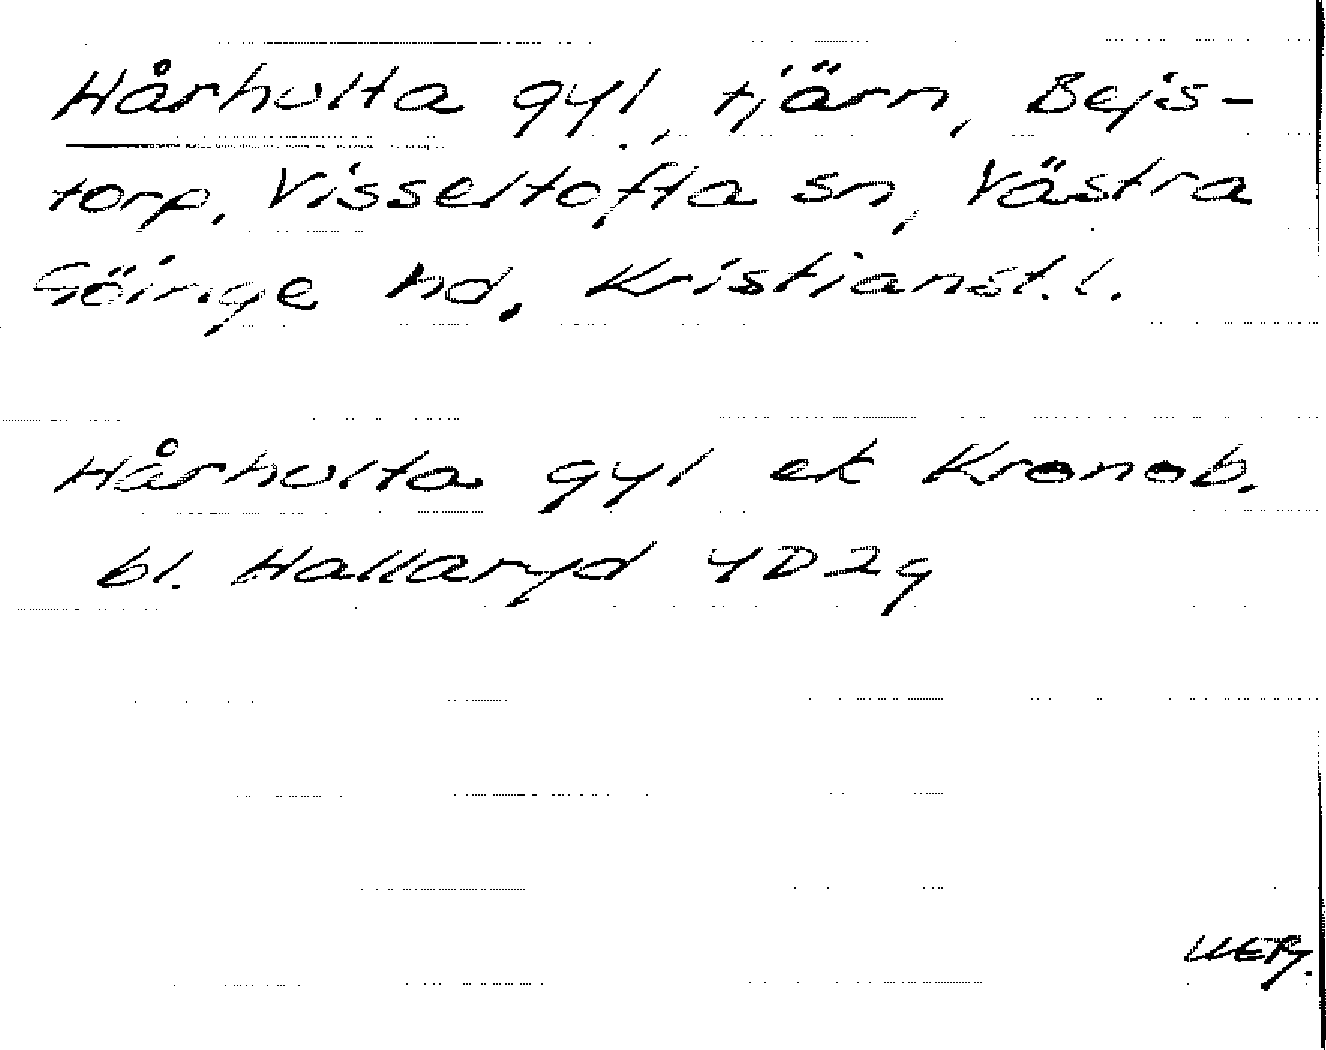 Hårhulta gyl, tjärn, Bejs-
torp, Visseltofta sn, Västra
Göinge hd, Kristianst.l.
Hårhulta gyl ek Kronob.
bl. Hallaryd 4D2g